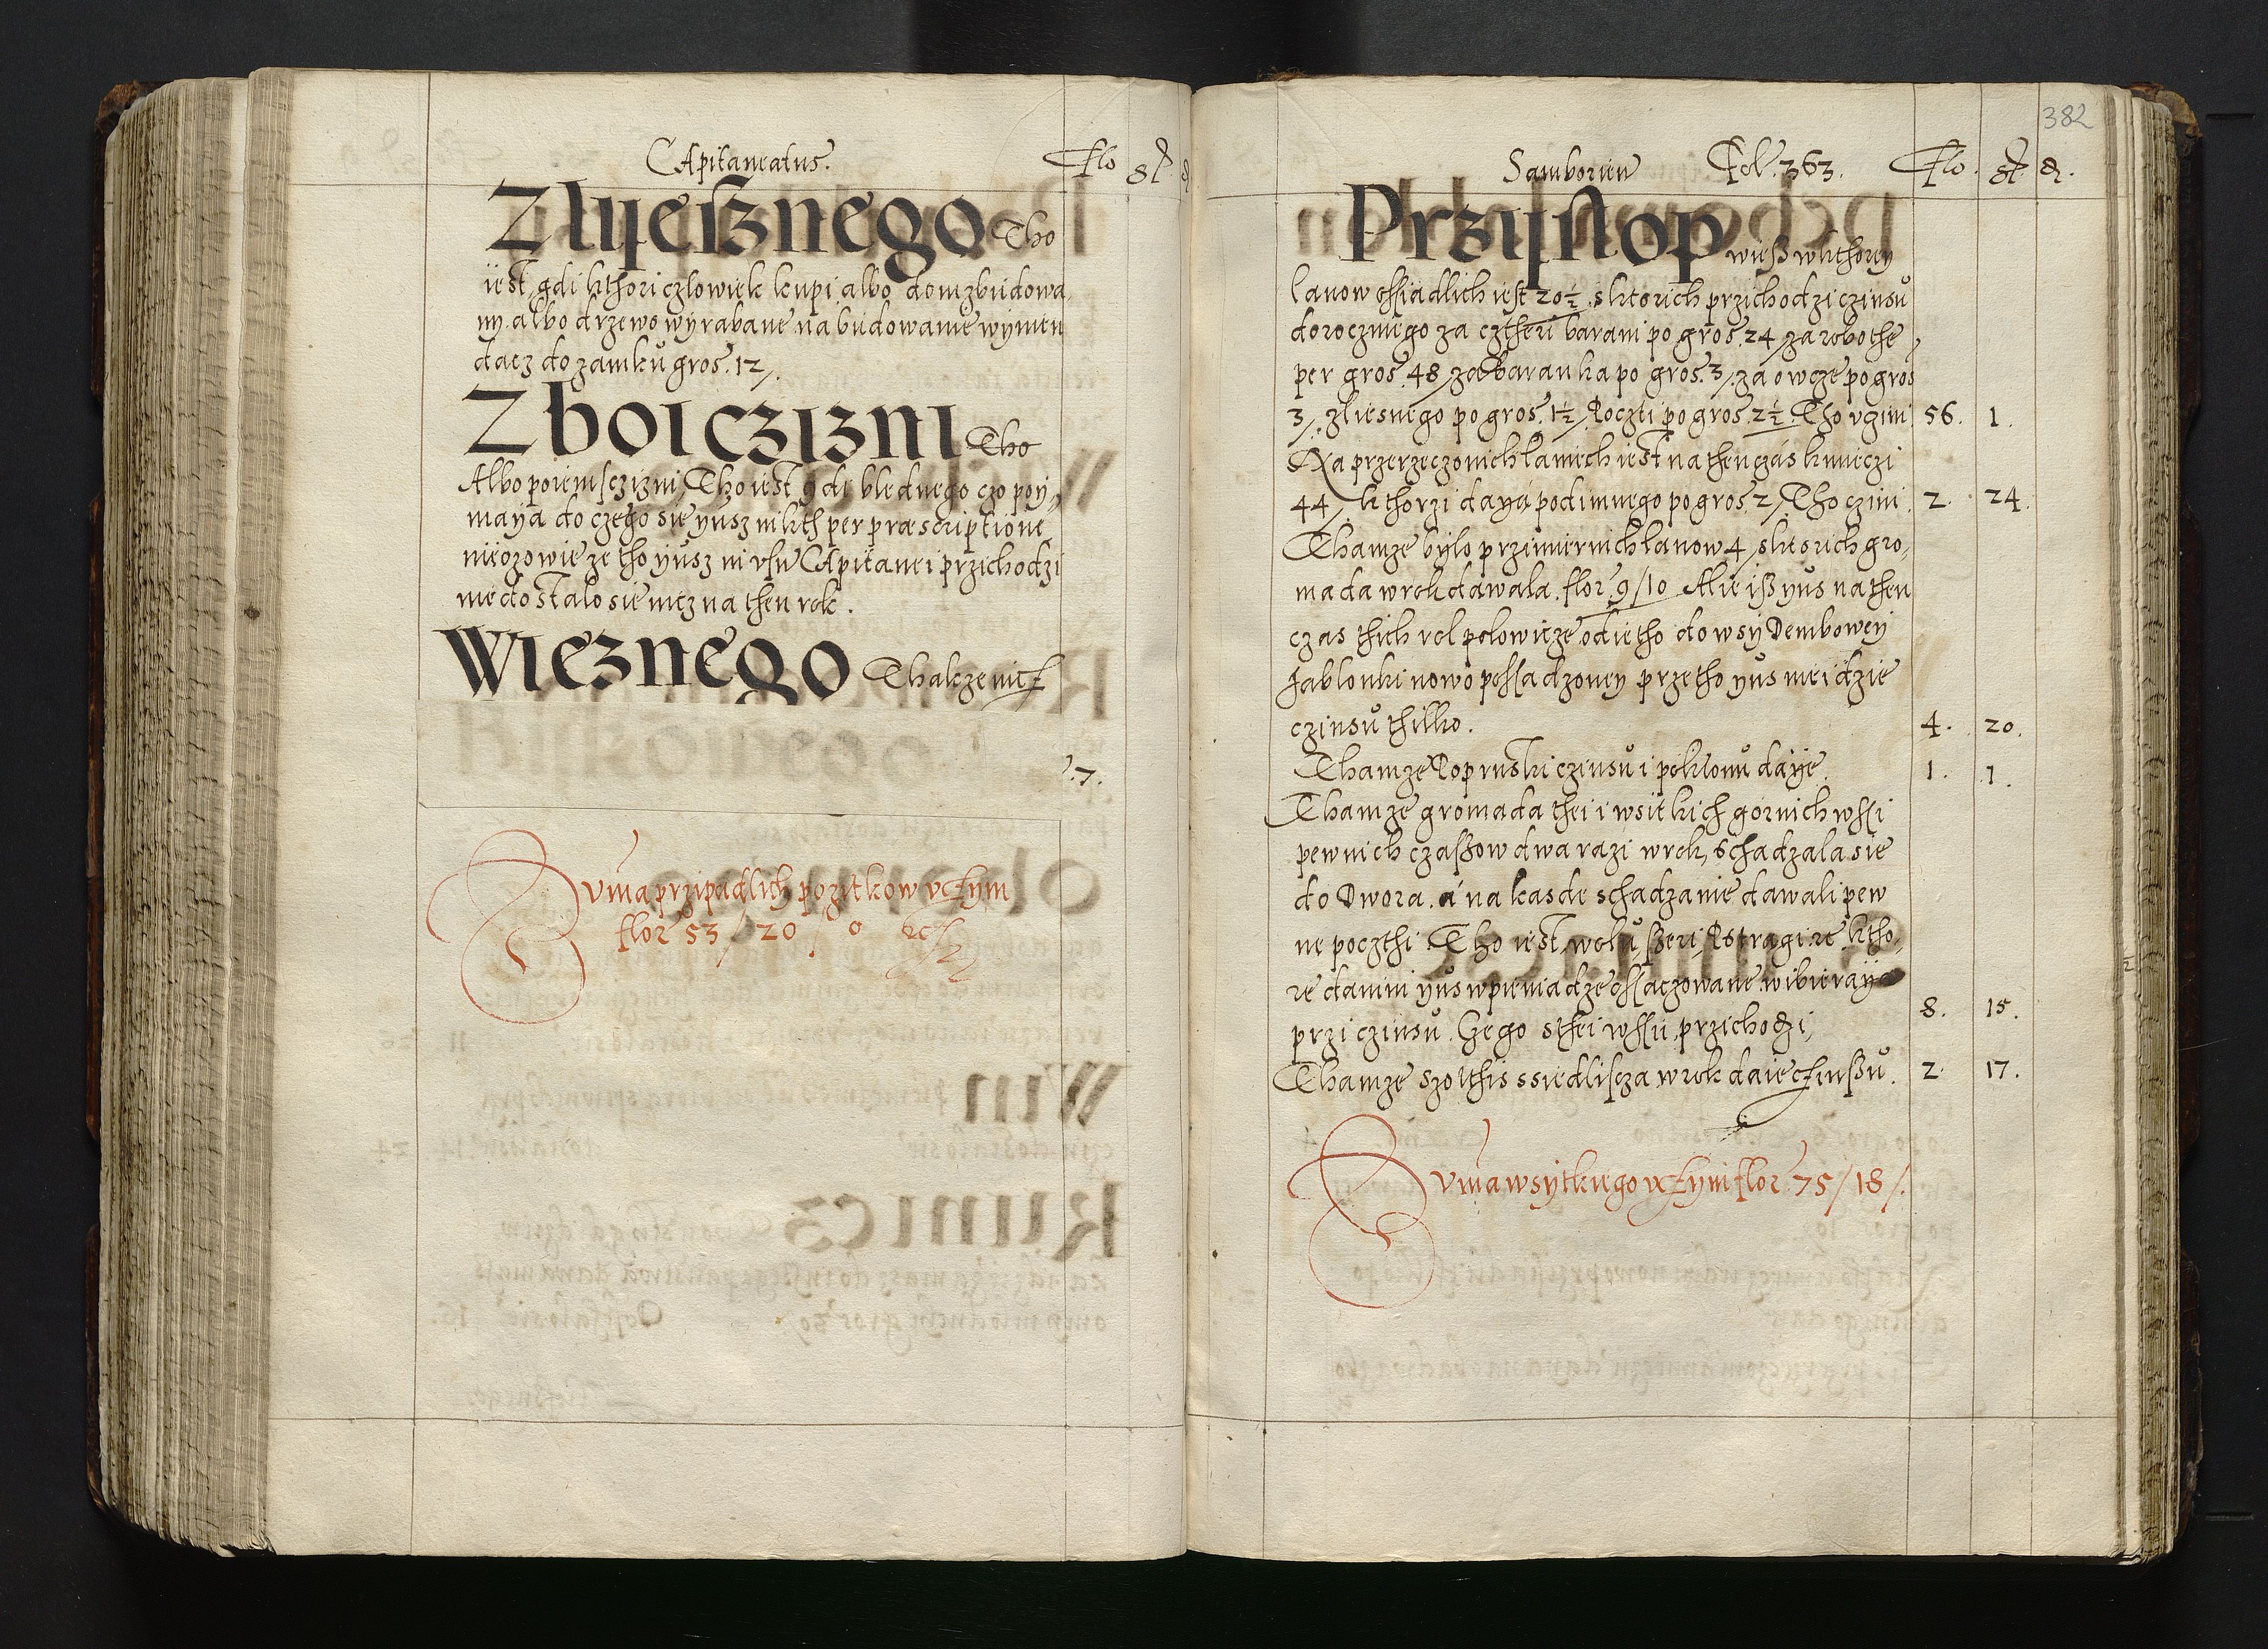 CApitaneatus. Flo gl
Zlyesznego Tho
iest, gdi kthori człowiek kupi albo dom zbudowa
ny. albo drzewo wyrabane na budowanie wymen
dacz do zamku gros. 12/.
Zboiczizni Tho
Albo poiemsczizni, Tho iest gdi blednego czo poy
maya do czego sie yusz nikth per præscriptione
nieozowie ze tho yusz ni vsu Capitanei przichodzi
niedostalo sie nicz na then rok.
Wieznego Thakze nicz
7.
Summa przipadlich pozitkow vczym
flor 53/ 20/. 0
382
Samborien Fol. 363. Flo. gl. d.
Przystop wiesz w kthorey
lanow ossiadlich iest 20½. s ktorich przichodzi czinsu
dorocznego za cztheri barani po gros. 24/ za robothe
per gros. 48/ za Baranka po gros. 3/. za owcze po gros
3/. zliesnego po gros. 1½/ Poczti po gros. 2½. Tho vczini 56. 1.
Na przerzeczonich laniech iest na then czas kmieczi
44/. kthorzi daya podimnego po gros. 2/. Tho czini. 2. 24.
Thamze bylo przimiernich lanow 4/ s ktorich gro,
mada w rok dawala. flor. 9/10 Alie isz yus na then
czas thich rol polowicze odietho do wsy Dembowey
Jablonki nowo possadzoney przetho yus nie idzie
czinsu thilko. 4. 20.
Thamze Popruski czinsu i poklonu daye. 1. 1.
Thamze gromada thei i wsitkich gornich wssi
pewnich czassow dwa razi w rok, schadzala sie
do Dwora. a na kasde schadzanie dawali pew
ne poczthi. Tho iest, woku, sseri, Pstragi. re ktho,
re danini yus w pieniadze ossaczowane. wibieraya
przi czinsu. Czego s thei wssii przichodzi, 8. 15.
Thamze szolthis s siedliscza w rok daie czinssu. 2. 17.
Summa wsytkiego vczyni flor. 75/18/.